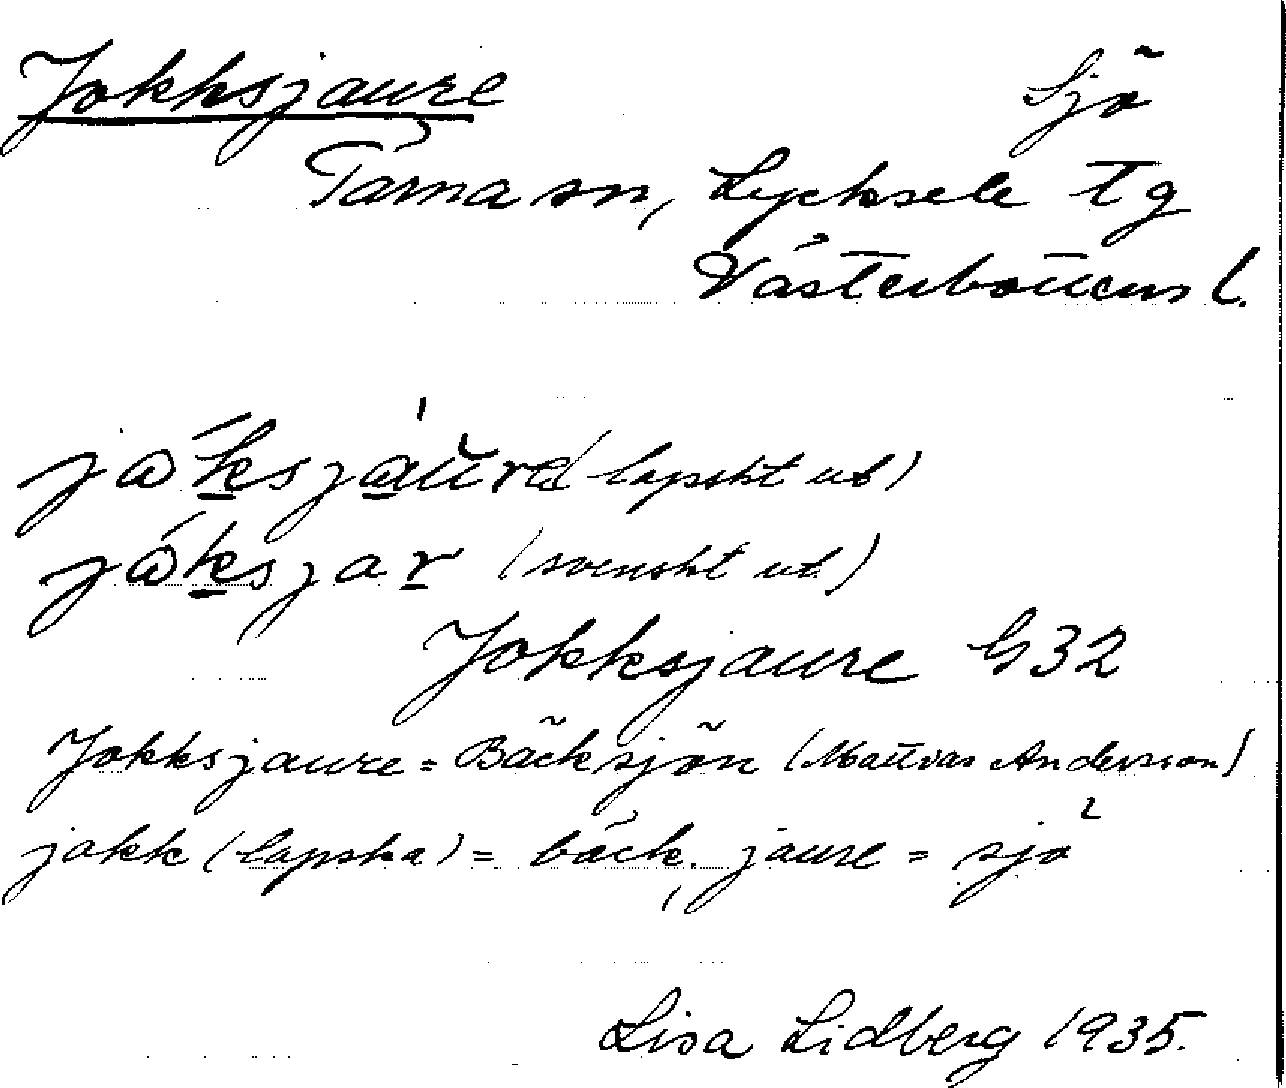 Jokksjaure Sjö
Tärna sn, Lycksele tg
Västerbottens l.
jåksjaure (lapskt utt)
jåksjar (svenskt utt)
Jokksjaure G32
Jokksjaure = Bäcksjön (Mattias Andersson)
jokk (lapska) = bäck, jaure = sjö
Lisa Lidberg 1935.